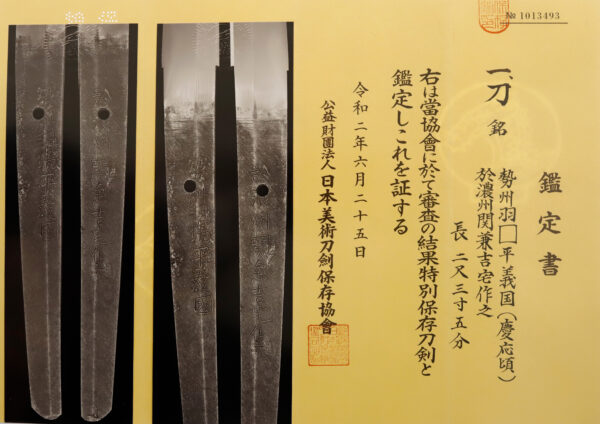 № 1013493
鑑定書
一、刀 銘
勢州羽□平義国(慶応頃)
於濃州関兼吉宅作之
長 二尺三寸五分
右は當協會に於て審査の結果特別保存刀剣と
鑑定しこれを証する
令和二年六月二十五日
公益財團法人 日本美術刀剣保存協會